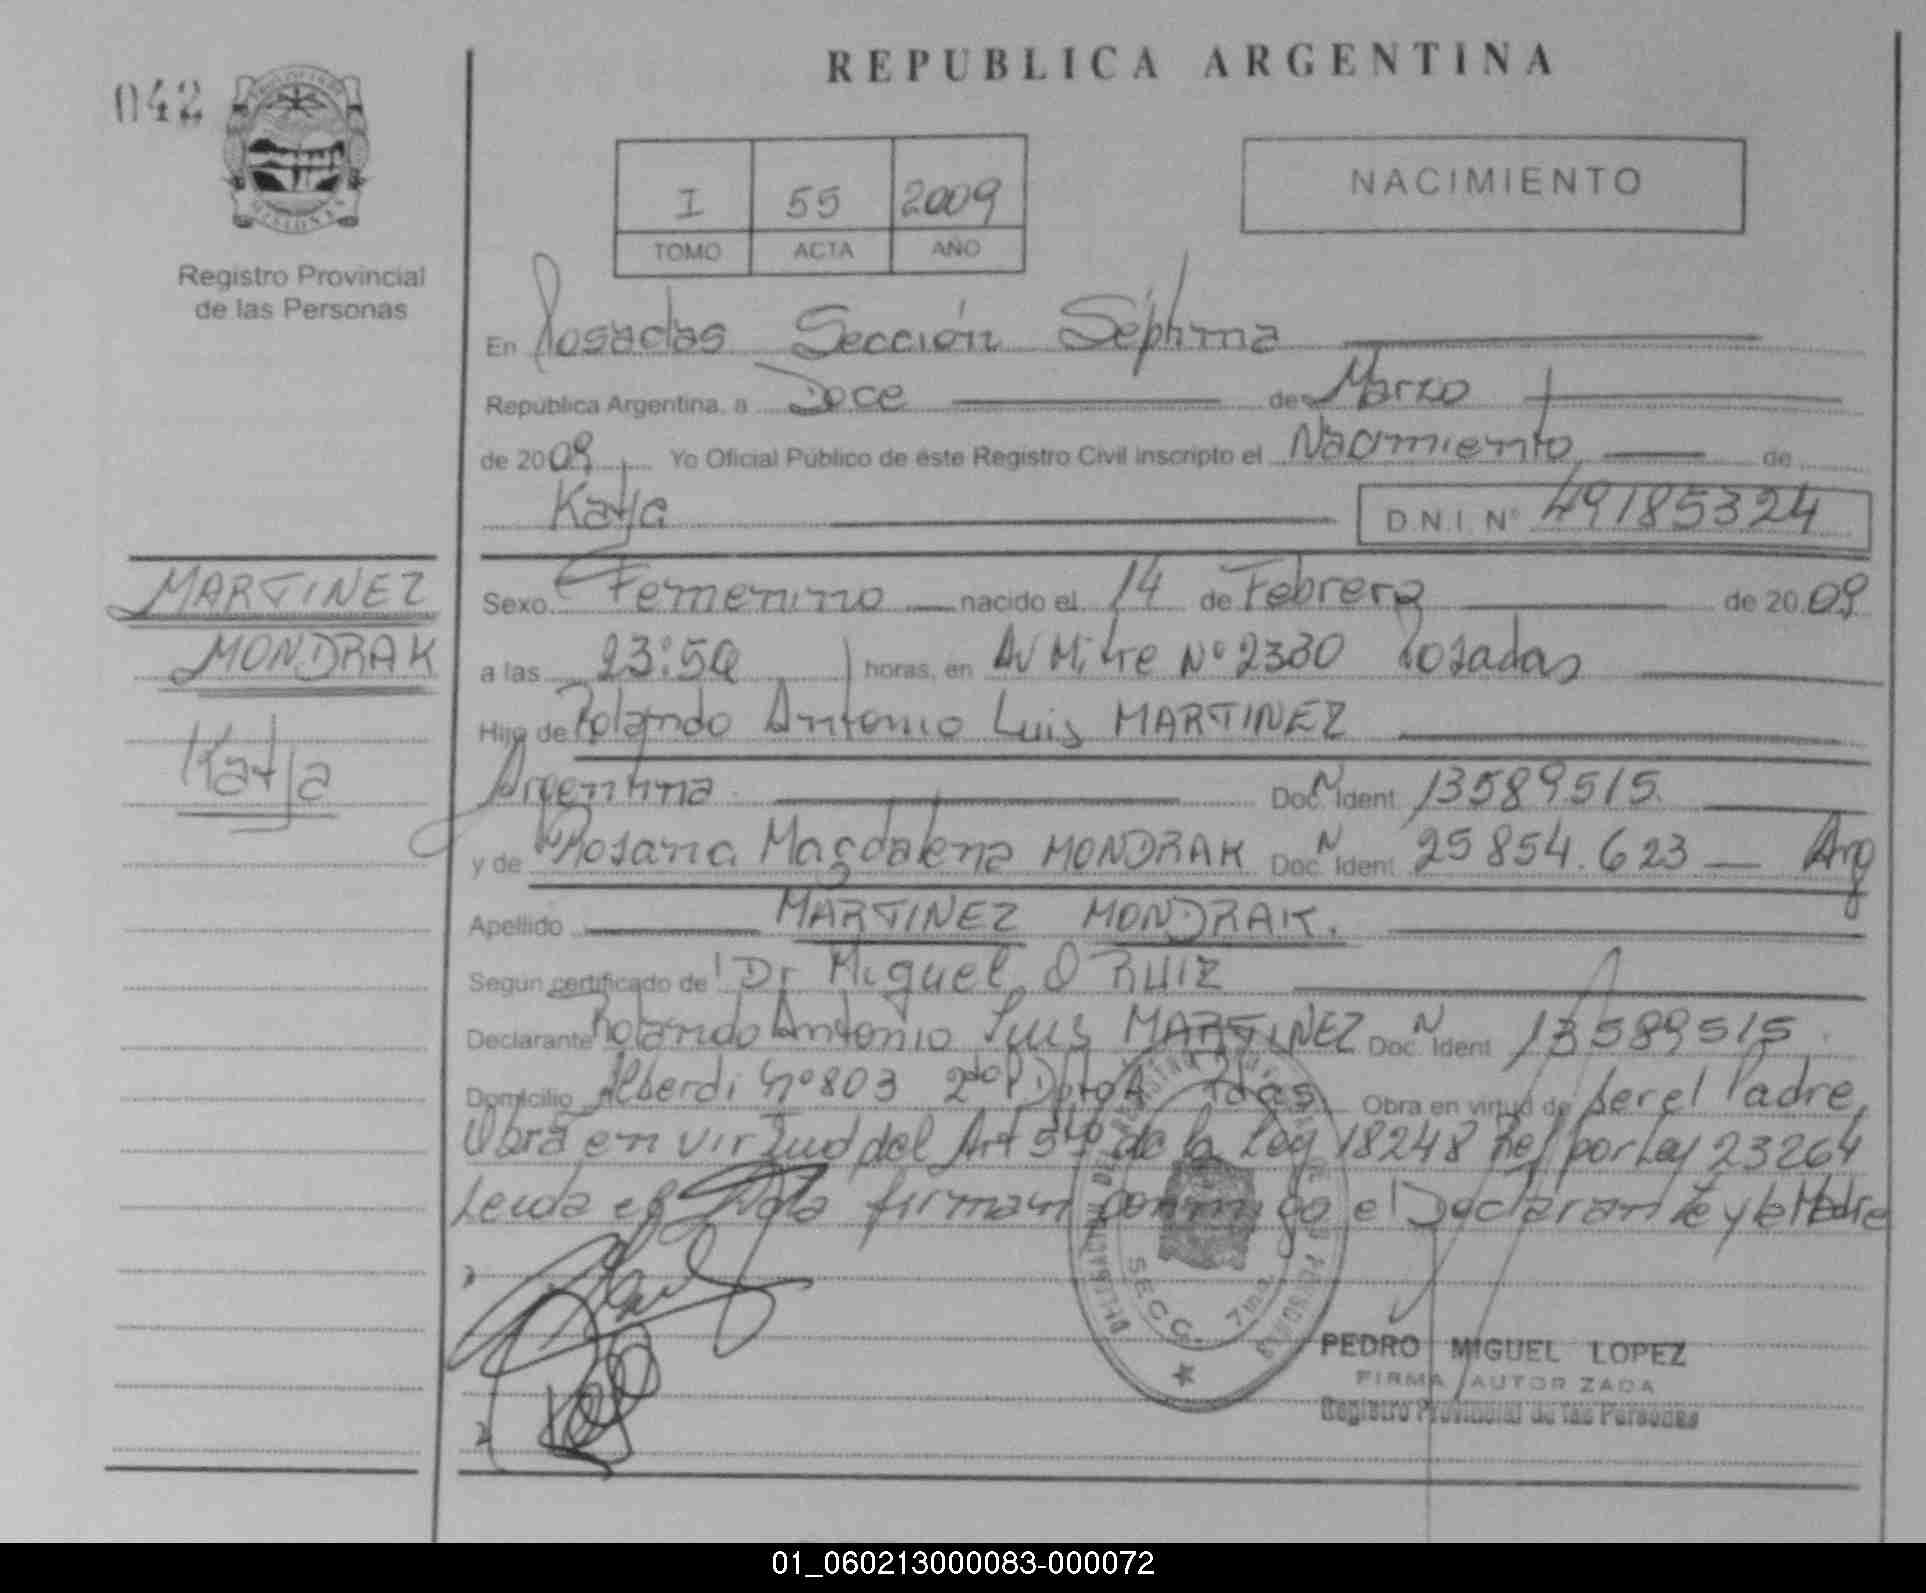 REPUBLICA ARGENTINA
042
NACIMIENTO
I 55 2009
TOMO ACTA AÑO
Registro Provincial
de las Personas
En Posadas Sección Séptima
República Argentina, a Doce de Marzo
de 2009 Yo Oficial Público de éste Registro Civil inscripto el Nacimiento de
Katja D.N.I. Nº 49185324
MARTINEZ
MONDRAK
Katja
Sexo Femenino nacido el 14 de Febrero de 2009
a las 23:50 horas, en Av Mitre Nº 2330 Posadas
Hijo de Rolando Antonio Luis MARTINEZ
Argentina Doc. N Ident 13589515
y de Rosana Magdalena MONDRAK Doc. N Ident 25854.623 Arg
Apellido MARTINEZ MONDRAK.
Según certificado de Dr Miguel O RUIZ
Declarante Rolando Antonio Luis MARTINEZ Doc. N Ident 13589515
Domicilio Alberdi Nº 803 2do P Dpto A Pdas Obra en virtud de ser el Padre,
Obra en virtud del Art 5to de la Ley 18248 Ref por Ley 23264
Leida el Acta firman conmigo el Declarante y la Madre
SECC. 7ma.
PEDRO MIGUEL LOPEZ
FIRMA AUTORIZADA
Registro Provincial de las Personas
01_060213000083-000072